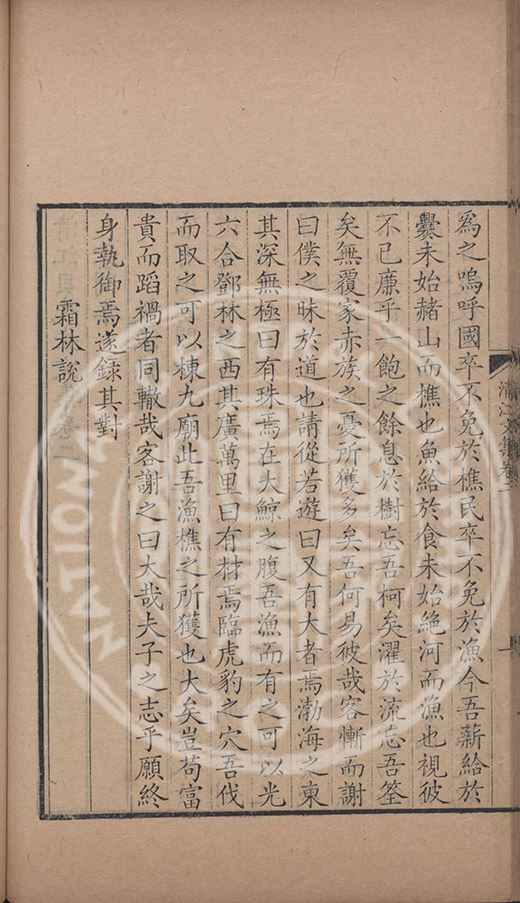 爲之嗚呼國卒不免於樵民卒不免於漁今吾薪給於
爨未始赭山而樵也魚給於食未始絶河而漁也視彼
不已廉乎一飽之餘息於樹忘吾柯矣濯於流忘吾筌
矣無覆家赤族之憂所獲多矣吾何易彼哉客慚而謝
曰僕之昧於道也請從若遊曰又有大者焉渤海之東
其深無極曰有珠焉在大鯨之腹吾漁而有之可以光
六合鄧林之西其廣萬里曰有材焉臨虎豹之穴吾伐
而取之可以棟九廟此吾漁樵之所獲也大矣豈苟富
貴而蹈禍者同轍哉客謝之曰大哉夫子之志乎願終
身執御焉遂録其對
霜林說
NATIONAL